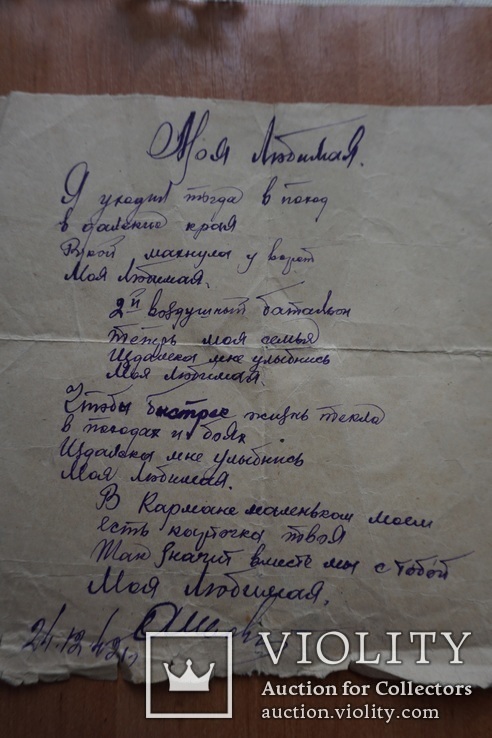 Моя Любимая.
Я уходил тогда в поход
в далекие края
Рукой махнула у ворот
Моя Любимая.
2й воздушный батальон
Теперь моя семья
Издалека мне улыбнись
Моя Любимая.
Чтобы быстрее жизнь текла
в походах и боях
Издалека мне улыбнись
Моя Любимая.
В Кармане маленьком моем
есть карточка твоя
Так значит вместе мы с тобой
Моя Любимая.
24.12.42г.
VIOLITY
Auction for Collectors
auction.violity.com